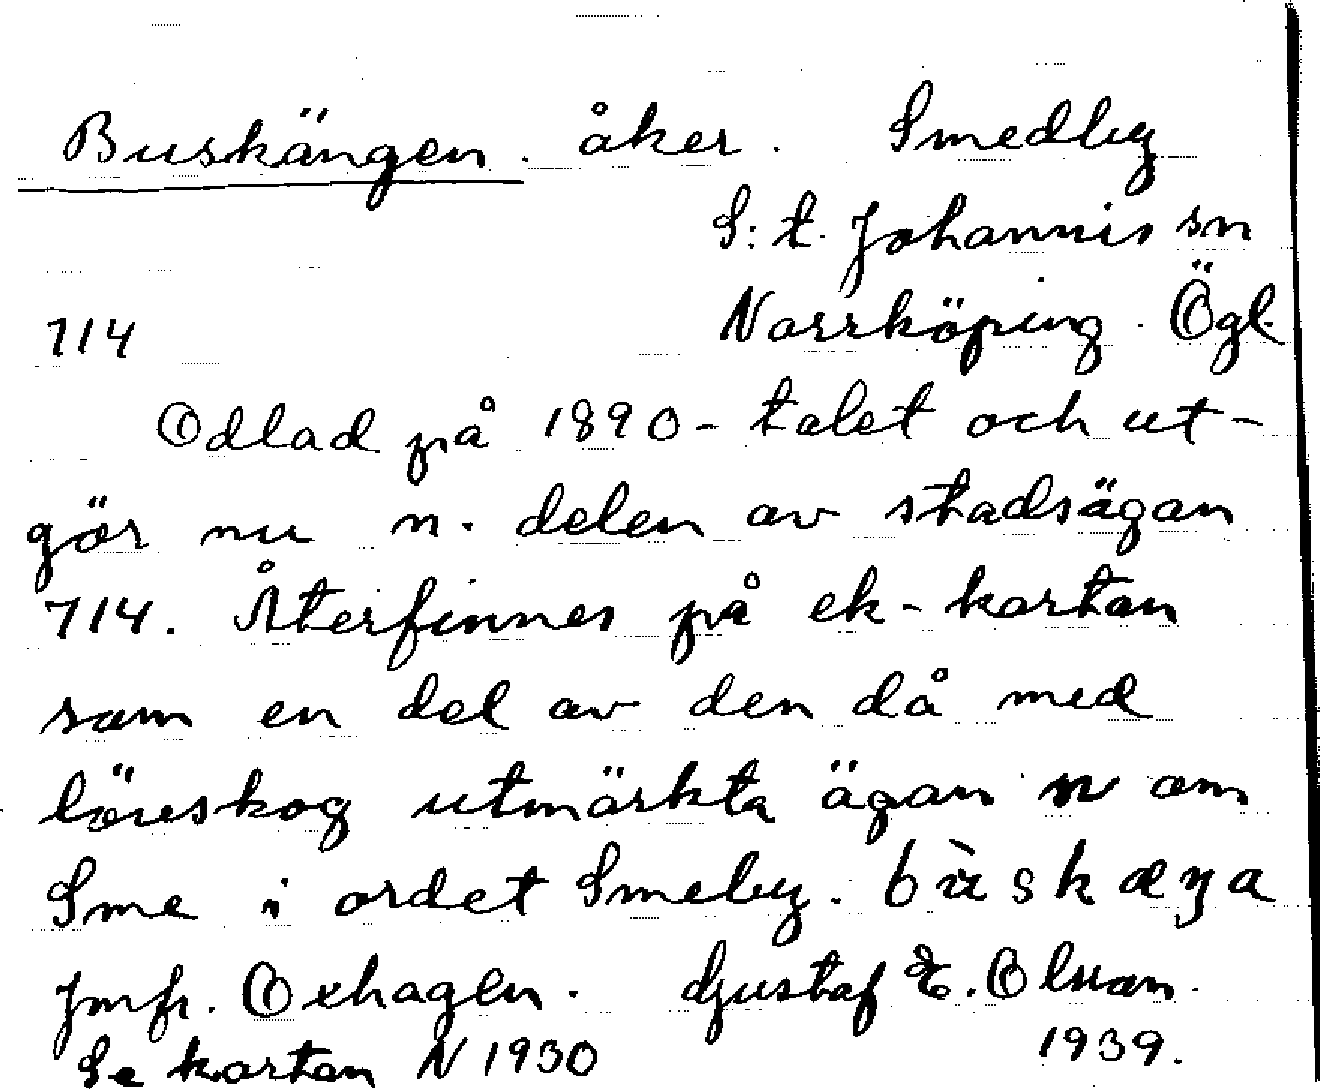 Buskängen. åker. Smedby
S:t Johannis sn
714 Norrköping. Ögl.
Odlad på 1890-talet och ut-
gör nu n. delen av stadsägan
714. Återfinnes på ek-kartan
som en del av den då med
lövskog utmärkta ägan n om
Sme i ordet Smeby.
Jmfr. Oxhagen. Gustaf E. Olson.
Se kartan N 1930 1939.